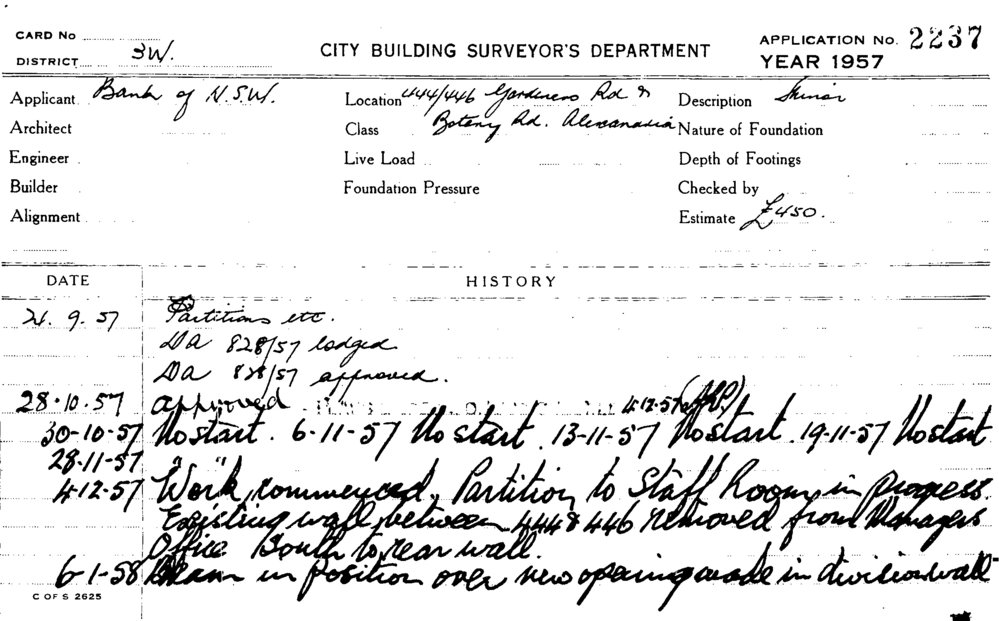 CARD No
DISTRICT 3W.
CITY BUILDING SURVEYOR'S DEPARTMENT
APPLICATION No. 2237
YEAR 1957
Applicant Bank of N.S.W.
Location 444/446 Gardeners Rd &
Description Minor
Architect
Class Botany Rd. Alexandria
Nature of Foundation
Engineer
Live Load
Depth of Footings
Builder
Foundation Pressure
Checked by
Alignment
Estimate £450.
DATE HISTORY
21. 9. 57 Partitions etc.
DA 828/57 lodged
DA 828/57 approved.
28.10.57 approved 4-12-57
30-10-57 No start. 6-11-57 No start. 13-11-57 No start. 19-11-57 No start
28-11-57 " "
4-12-57 Work commenced, Partition to Staff Room, in progress.
Existing wall between 444 & 446 removed from Managers
Office South to rear wall.
6-1-58 Beam in position over new opening made in division wall
C OF S 2625